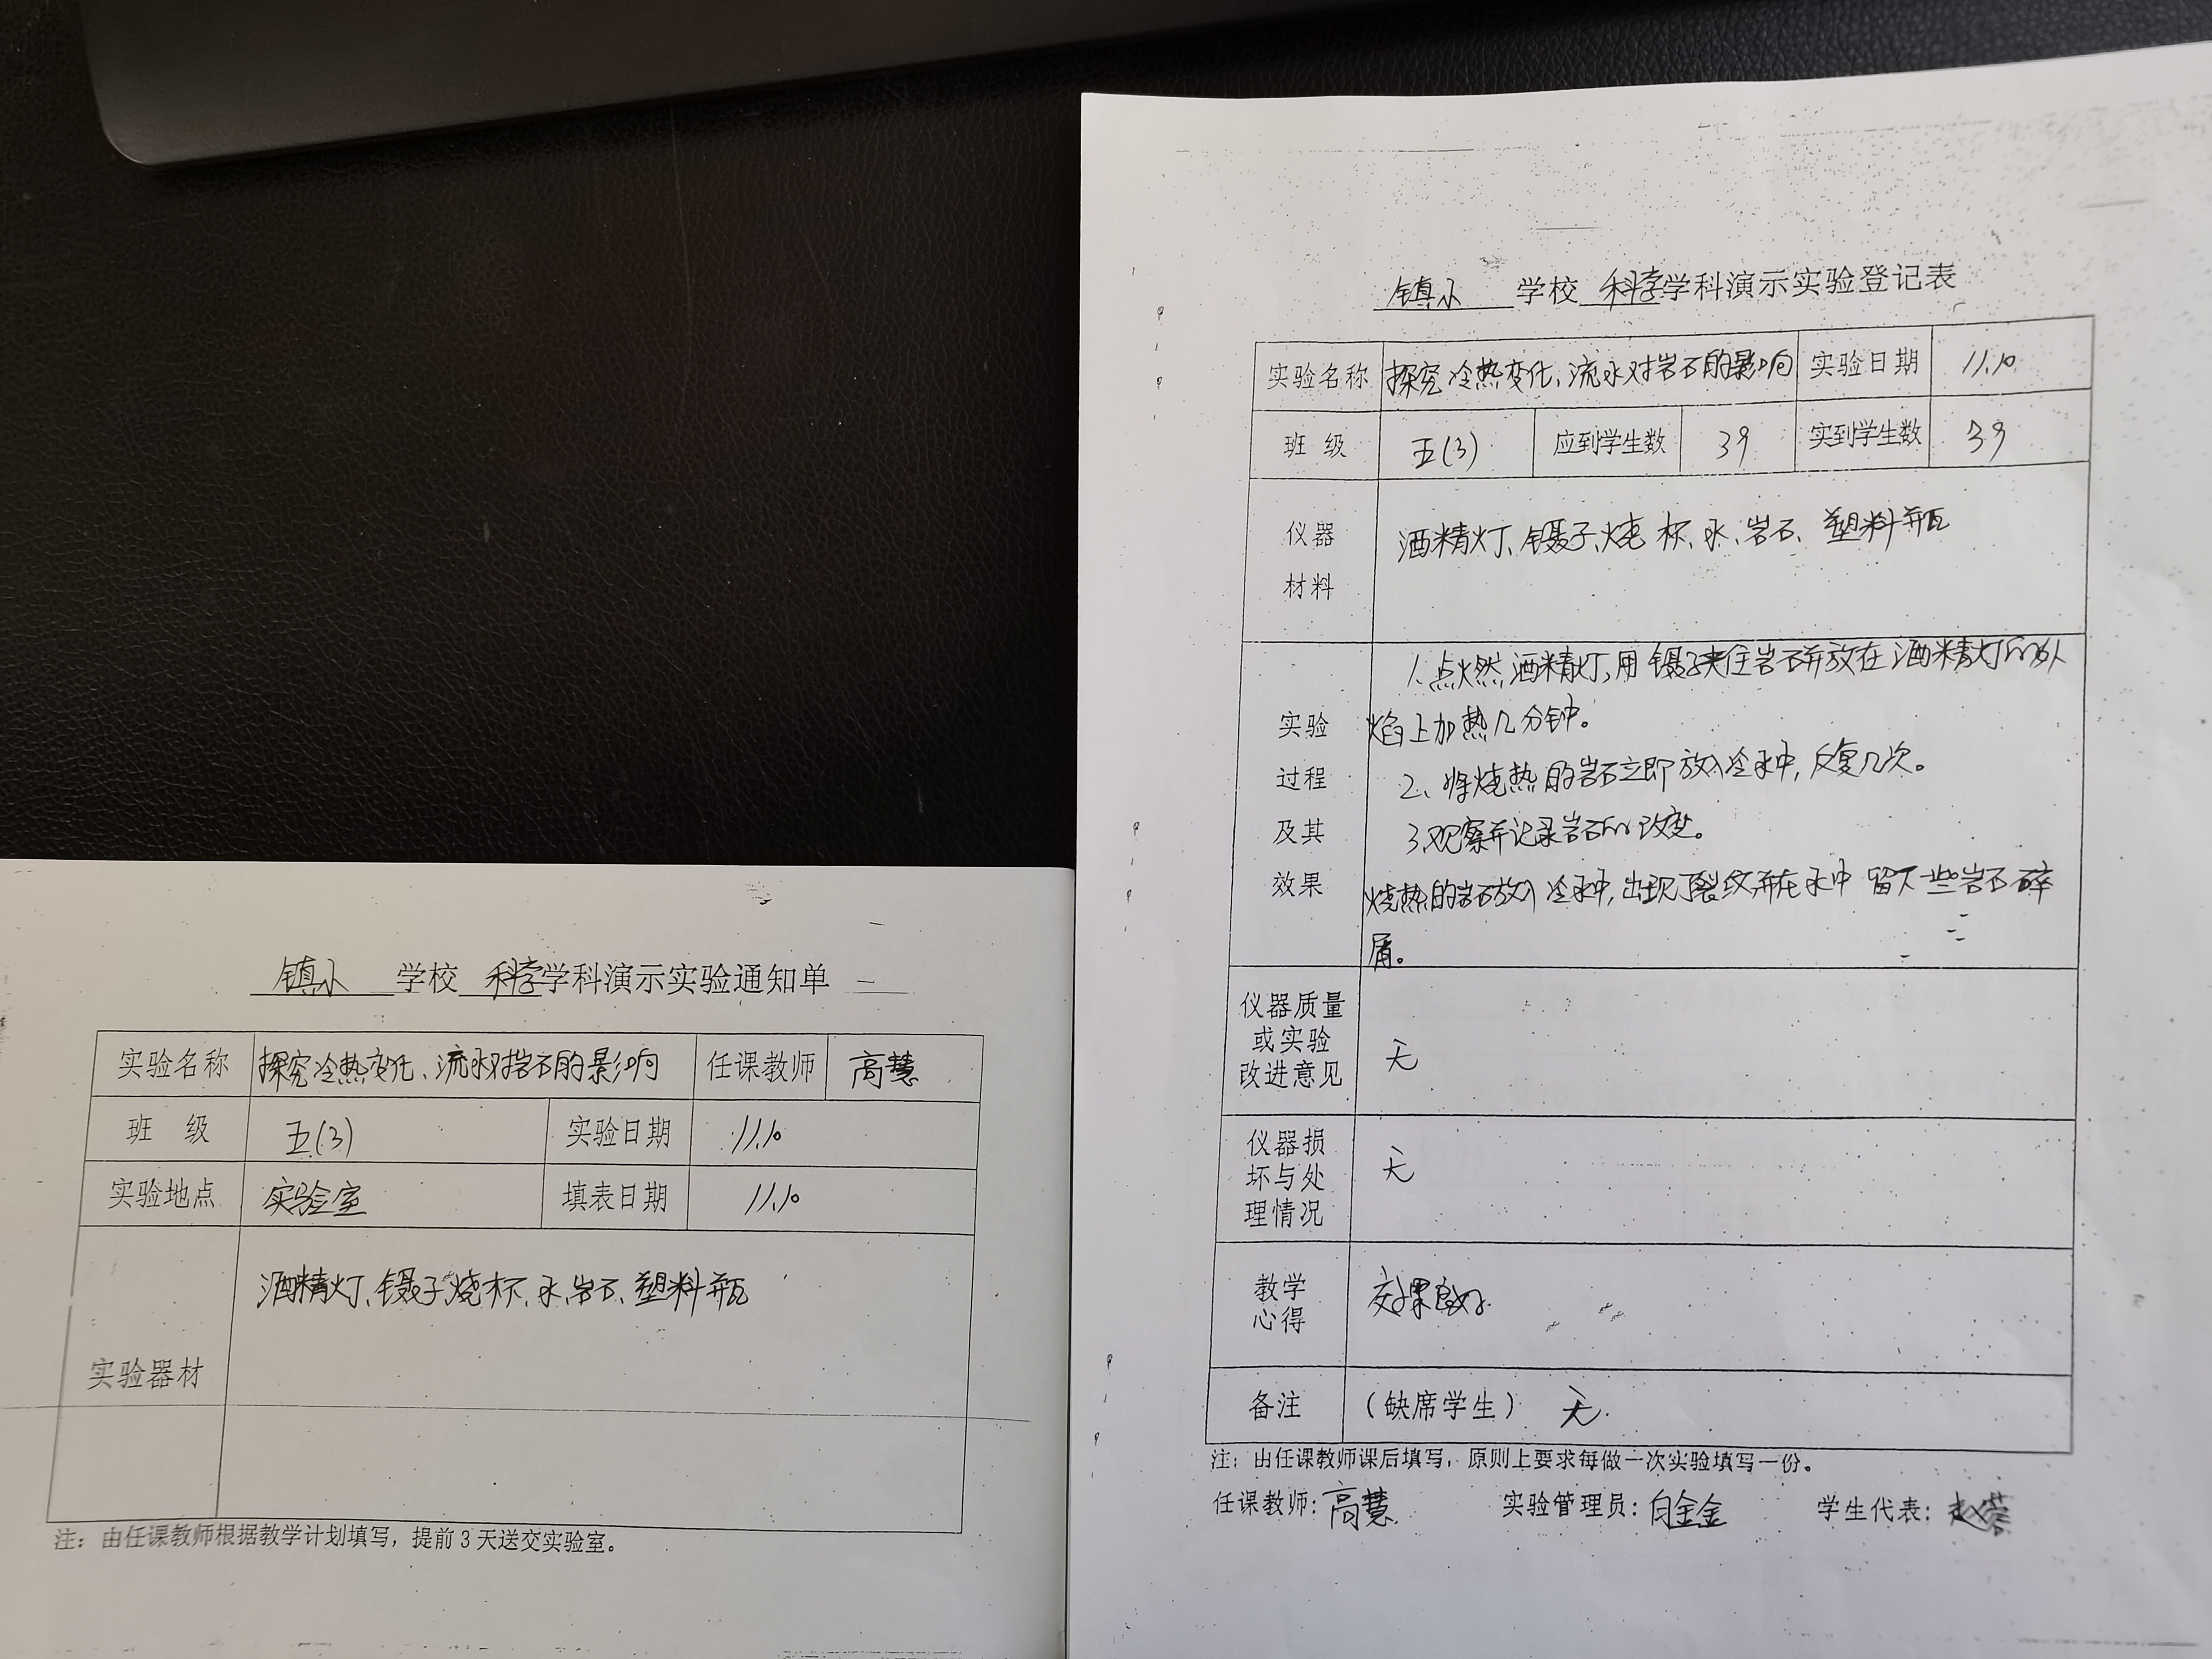 镇小 学校 科学学科演示实验通知单
实验名称 探究冷热变化、流水对岩石的影响 任课教师 高慧
班 级 五(3) 实验日期 11.10
实验地点 实验室 填表日期 11.10
实验器材 酒精灯、镊子、烧杯、水、岩石、塑料瓶
注：由任课教师根据教学计划填写，提前3天送交实验室。
镇小 学校 科学学科演示实验登记表
实验名称 探究冷热变化、流水对岩石的影响 实验日期 11.10
班 级 五(3) 应到学生数 39 实到学生数 39
仪器
材料
酒精灯、镊子、烧杯、水、岩石、塑料瓶
实验
过程
及其
效果
1.点燃酒精灯,用镊子夹住岩石并放在酒精灯的外
焰上加热几分钟。
2、将烧热的岩石立即放入冷水中,反复几次。
3.观察并记录岩石的改变。
烧热的岩石放入冷水中,出现了裂纹并在水中留下一些岩石碎
屑。
仪器质量
或实验
改进意见
无
仪器损
坏与处
理情况
无
教学
心得
效果良好.
备注 (缺席学生) 无.
注：由任课教师课后填写，原则上要求每做一次实验填写一份。
任课教师：高慧 实验管理员：白金金 学生代表：